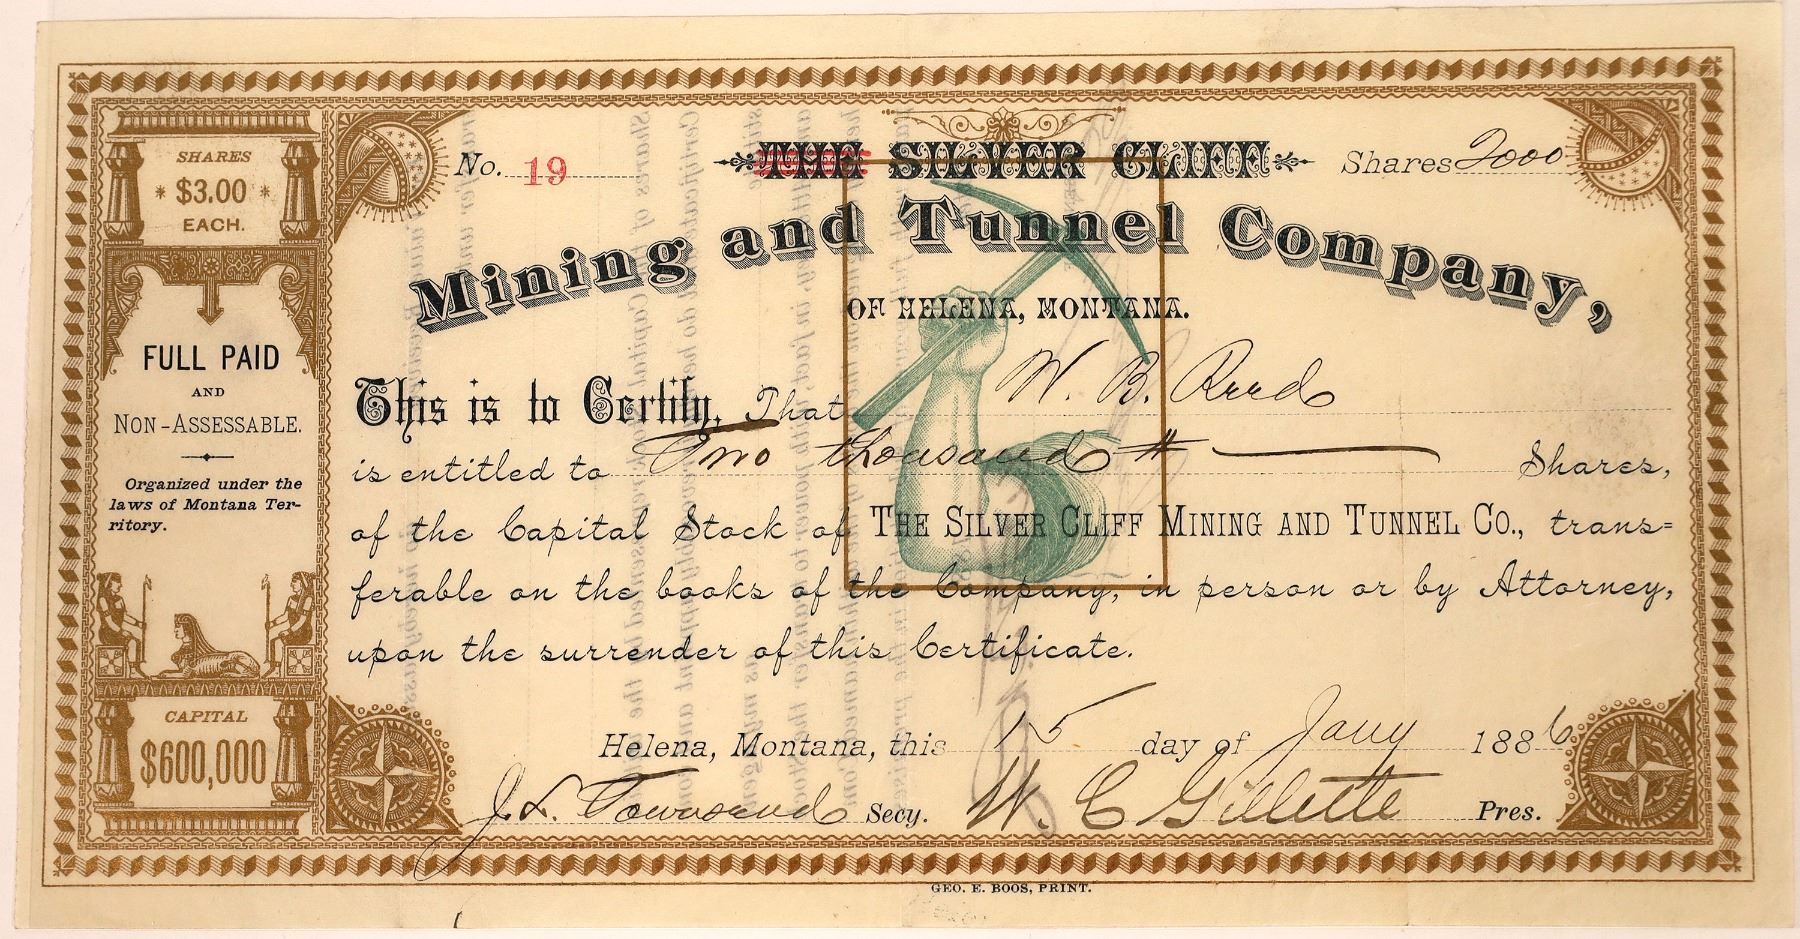 SHARES
* $3.00 *
EACH.
FULL PAID
AND
NON-ASSESSABLE.
Organized under the
laws of Montana Ter-
ritory.
CAPITAL
$600,000
No. 19
THE SILVER CLIFF
Shares 2000
Mining and Tunnel Company,
OF HELENA, MONTANA.
This is to Certify, That W. B. Reed
is entitled to Two thousand Shares,
of the Capital Stock of THE SILVER CLIFF MINING AND TUNNEL CO., trans=
ferable on the books of the Company, in person or by Attorney,
upon the surrender of this Certificate.
Helena, Montana, this 15 day of Jany 1886
J. S. Townsend Secy. W. C Gillette Pres.
GEO. E. BOOS, PRINT.